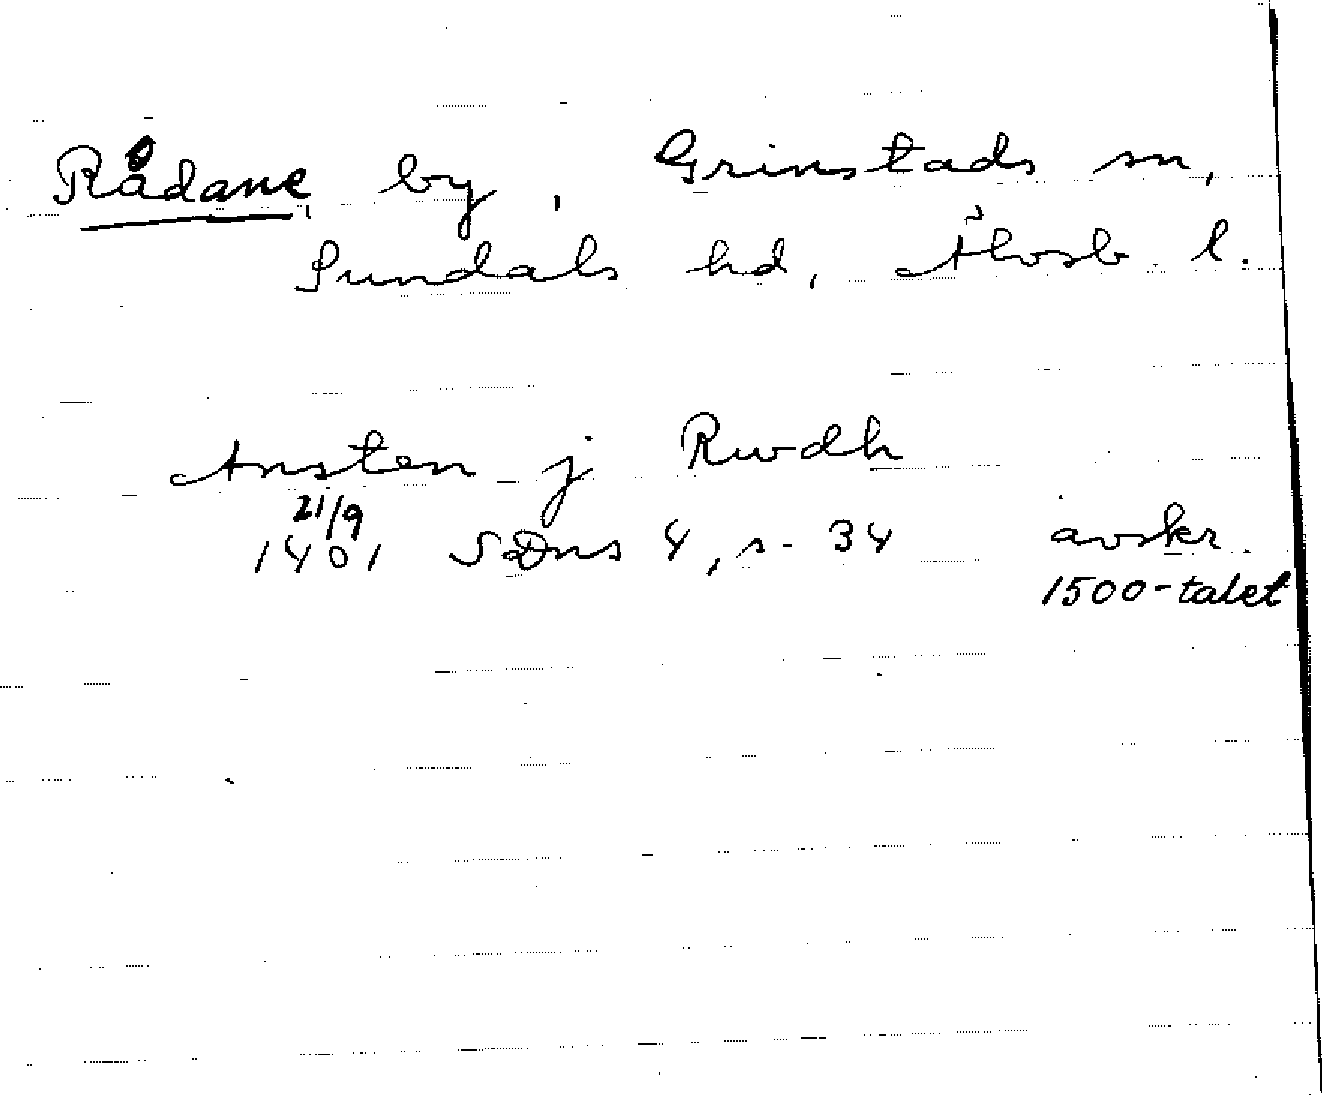 Rådane by, Grinstads sn,
Sundals hd, Älvsb. l.
Ansten j Rwdh
21/9
1401 SDns 4, s. 34 avskr.
1500-talet